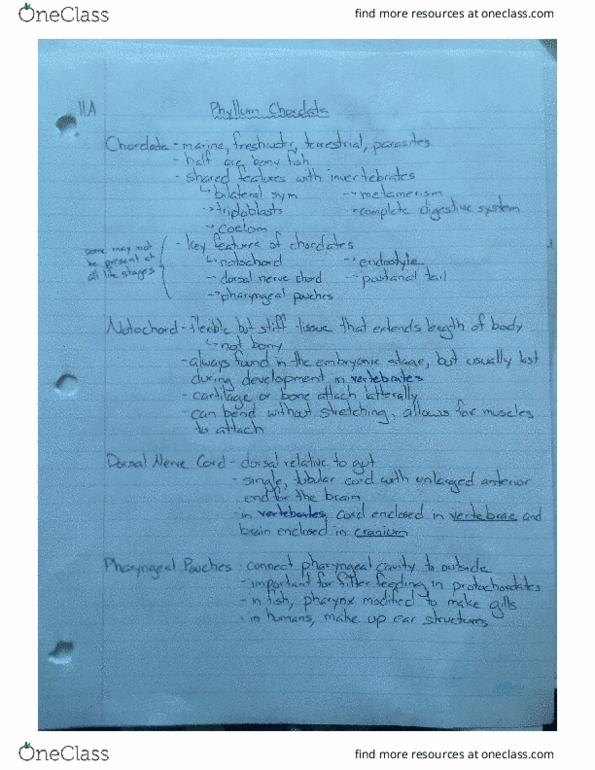 OneClass
find more resources at oneclass.com
11A
Phyllum Chordata
Chordata - marine, freshwater, terrestrial, parasites
- half are bony fish
- shared features with invertebrates
↳ bilateral sym → metamerism
→ triploblasts → complete digestive system
→ coelom
some may not be present at all life stages
- key features of chordates
↳ notochord → endostyle
→ dorsal nerve chord → postanal tail
→ pharyngeal pouches
Notochord - flexible but stiff tissue that extends length of body
↳ not bony
- always found in the embryonic stage, but usually lost
during development in vertebrates
- cartilage or bone attach latterally
- can bend without stretching, allows for muscles
to attach
Dorsal Nerve Cord - dorsal relative to gut
- single, tubular cord with enlarged anterior
end for the brain
- in vertebrates, cord enclosed in vertebrae and
brain enclosed in cranium
Pharyngeal Pouches - connect pharyngeal cavity to outside
- important for filter feeding in protochordates
- in fish, pharynx modified to make gills
- in humans, make up ear structures
OneClass
find more resources at oneclass.com